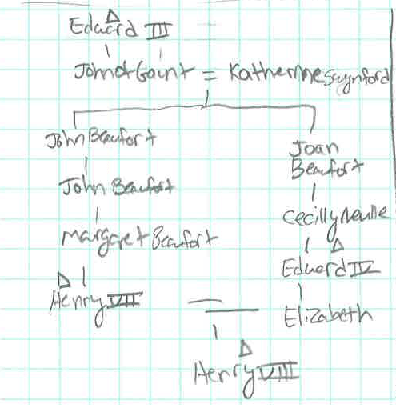 Edward III
John of Gaunt = Katherine Swynford
John Beaufort
Joan
Beaufort
John Beaufort
Cecilly Neville
Margaret Beaufort
Edward IV
Henry VII
Elizabeth
Henry VIII